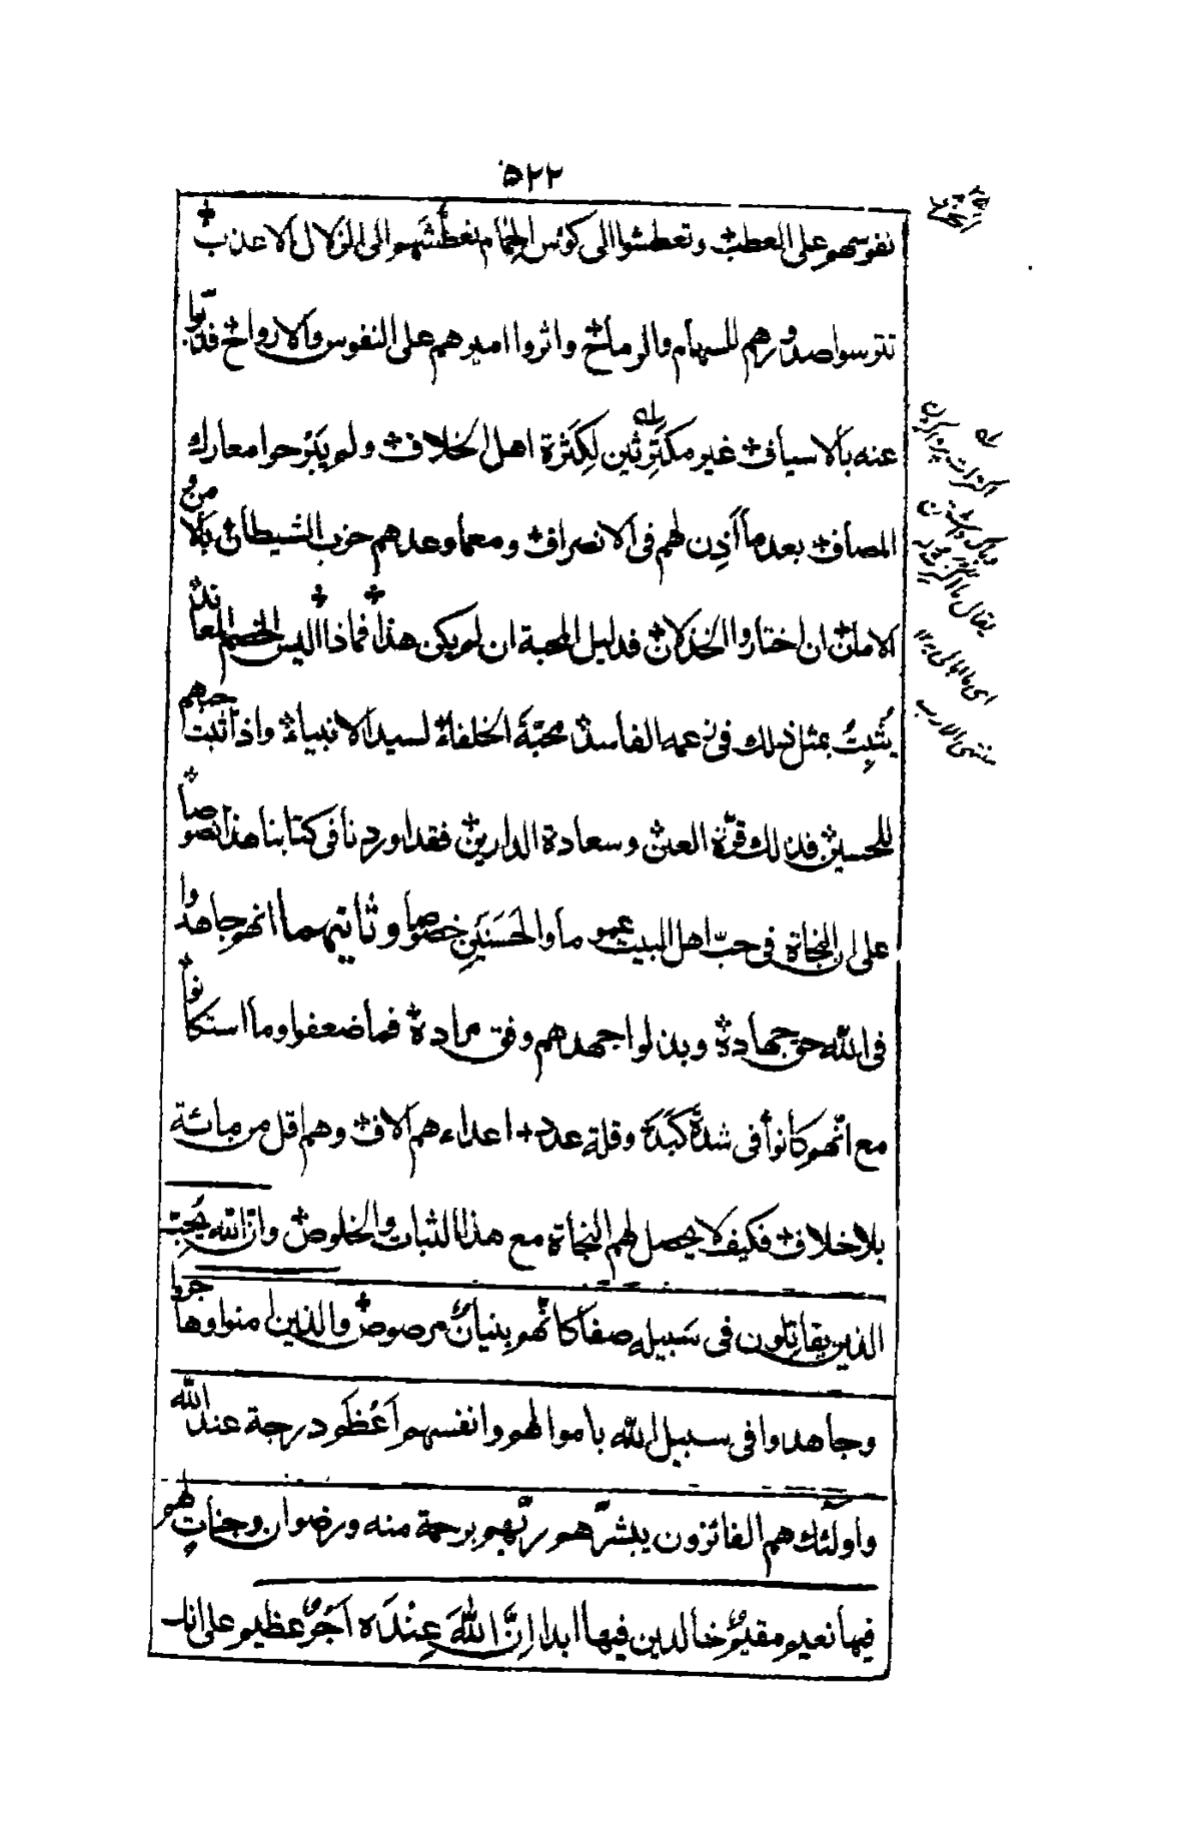 ۵۲۲
نفوسهم على العطب وتعطشوا الى كوئس الحمام تعطشهم الى الزلال الاعذب
تترسوا صدورهم للسهام والرماح واثروا اميرهم على النفوس والارواح فذبّوا
عنه بالاسياف غير مكترثين لِكَثرة اهل الخلاف ولم يَبْرحوا معارك
المصاف بعد ما أُذِن لهم فى الانصراف ومع ما وعدهم حزب الشيطان من بالا
الامان ان اختاروا الخذلان فدليل المحبة ان لم يكن هذا فما ذا اليس الخصم المعاند
يُثبِتُ بمثل ذلك فى زعمه الفاسد محبّةَ الخلفاء لسيد الانبياء واذا ثبت حبهم
للحسين فذلك قرّة العين وسعادة الدارين فقد اوردنا فى كتابنا هذا نصوصاً
على ان النجاة فى حبّ اهل البيت عموما والحَسَنَينِ خصوصا وثانيهما انهم جاهدوا
فى الله حق جهاده وبذلوا جهدهم وفق مراده فما ضعفوا وما استكانوا
مع انّهم كانوا فى شدّة كَبَدَة وقلة عدد اعداءهم آلاف وهم اقل من مائة
بلا خلاف فكيف لا يحصل لهم النجاة مع هذا الثبات والخلوص وان الله يُحِبّ
الذين يقاتِلون فى سَبيلِهِ صفا كانّهم بنيانٌ مرصوص والذين امنوا وهاجروا
وجاهدوا فى سبيل الله باموالهم وانفسهم اَعْظَم درجة عند الله
واولئك هم الفائزون يبشّرهم ربّهم برحمة منه ورضوان وجناتٍ لهم
فيها نعيم مقيمٌ خالدين فيها ابدا اِنَّ اللهَ عِنْدَه اَجْرٌ عظيم على ان
يقال ما اكترث به
اى ما ابالى به
منتهى الارب